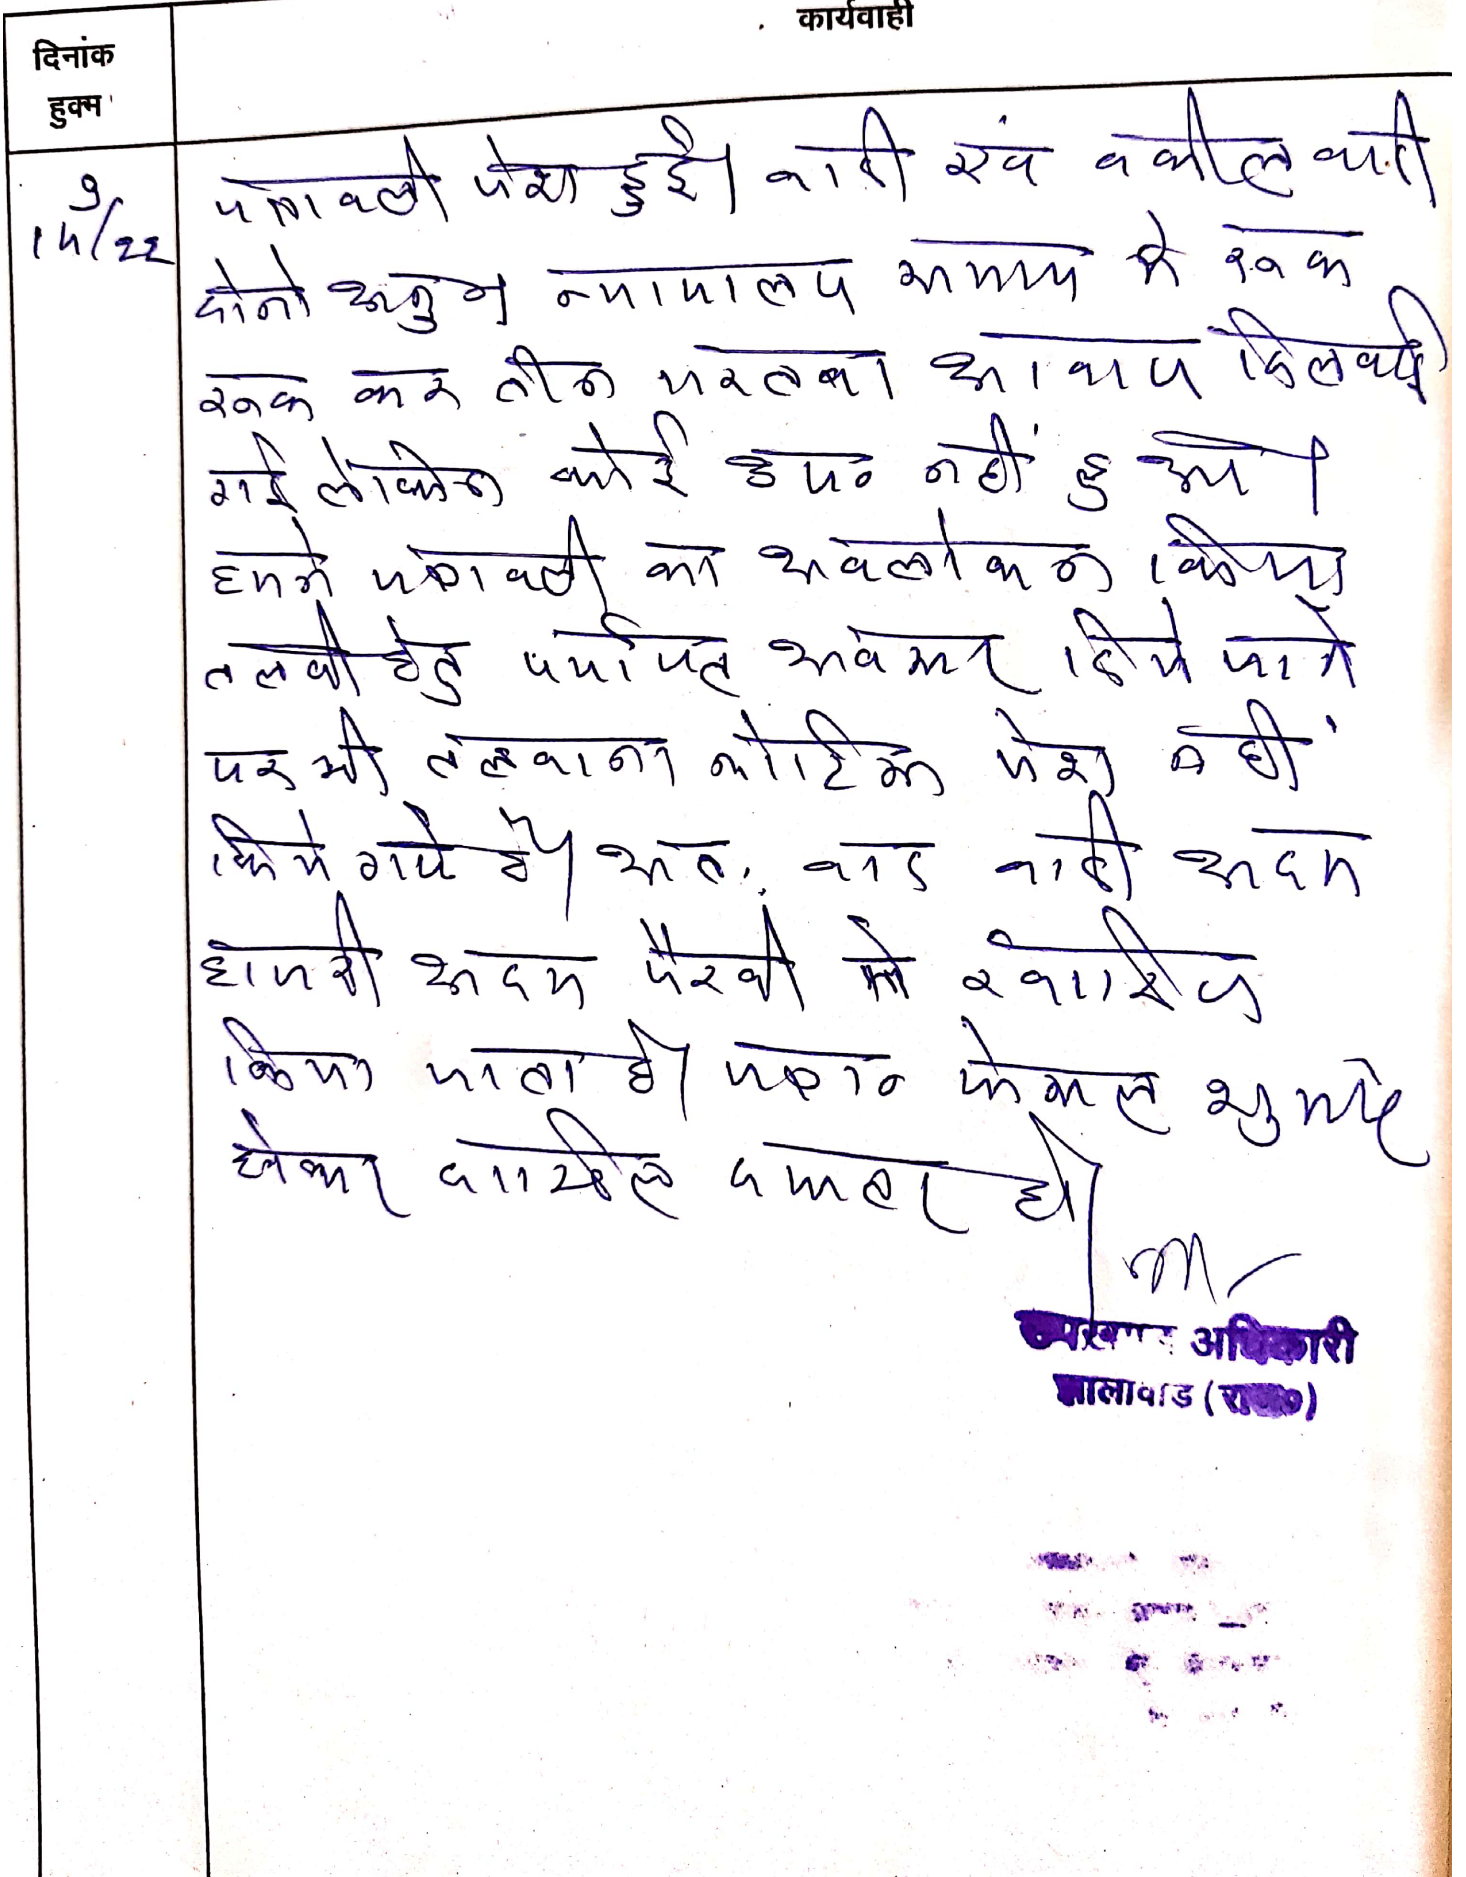 कार्यवाही
दिनांक
हुक्म
9
15/22
पत्रावली पेश हुई। वादी एवं वकील वादी
दोनो अनु० न्यायालय समय मे रूक
रूक कर तीन मरतबा आवाज दिलवाई
गई लेकिन कोई उपo नहीं हुआ।
हमने पत्रावली का अवलोकन किया
तलबी हेतु पर्याप्त अवसर दिये जाने
पर भी तलवाना नोटिस पेश नहीं
किये गये है। अतः वाद वादी अदम
हाजरी अदम पैरवी मे खारिज
किया जाता है। पत्राo फेसल शुमार
होकर दाखील दफ्तर हो।
उपखण्ड अधिकारी
झालावाड (राज०)